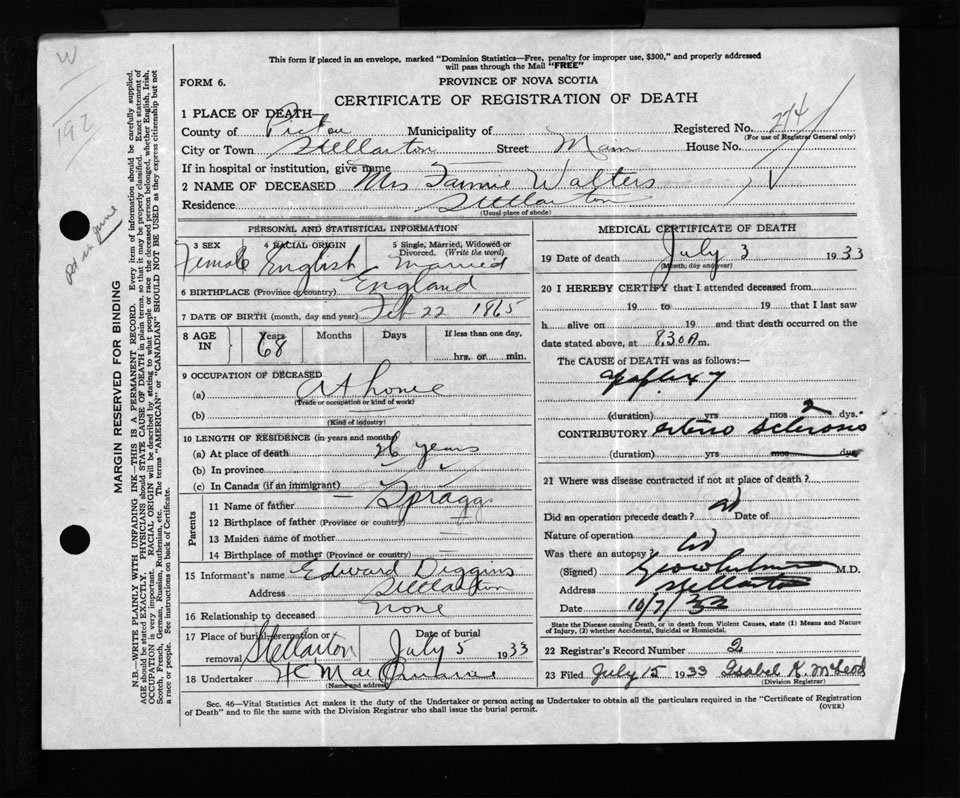 This form if placed in an envelope, marked "Dominion Statistics—Free, penalty for improper use, $300," and properly addressed
will pass through the Mail "FREE"
FORM 6.
PROVINCE OF NOVA SCOTIA
CERTIFICATE OF REGISTRATION OF DEATH
1 PLACE OF DEATH
County of Pictou Municipality of Registered No. 274
(For use of Registrar General only)
City or Town Stellarton Street Main House No.
If in hospital or institution, give name
2 NAME OF DECEASED Mrs Fannie Walters
Residence Stellarton
(Usual place of abode)
PERSONAL AND STATISTICAL INFORMATION
3 SEX 4 RACIAL ORIGIN 5 Single, Married, Widowed or
Divorced. (Write the word)
Female English Married
6 BIRTHPLACE (Province or country) England
7 DATE OF BIRTH (month, day and year) Feb 22 1865
8 AGE IN Years Months Days If less than one day,
68 hrs. or min.
9 OCCUPATION OF DECEASED
(a) At home
(Trade or occupation or kind of work)
(b)
(Kind of industry)
10 LENGTH OF RESIDENCE (in years and months)
(a) At place of death 26 years
(b) In province
(c) In Canada (if an immigrant)
Parents
11 Name of father — Spragg
12 Birthplace of father (Province or country)
13 Maiden name of mother —
14 Birthplace of mother (Province or country) —
15 Informant's name Edward Diggins
Address Stellarton
16 Relationship to deceased none
17 Place of burial, cremation or Date of burial
removal Stellarton July 5 1933
18 Undertaker
(Name and address)
MEDICAL CERTIFICATE OF DEATH
19 Date of death July 3 1933
(Month, day and year)
20 I HEREBY CERTIFY that I attended deceased from
19 to 19 that I last saw
h alive on 19 and that death occurred on
date stated above, at 8.30 A m.
The CAUSE of DEATH was as follows:—
Apoplexy
(duration) yrs mos 2 dys.
CONTRIBUTORY Arterio Sclerosis
(duration) yrs mos dys
21 Where was disease contracted if not at place of death?
Did an operation precede death? Date of
Nature of operation
Was there an autopsy
(Signed) M.D.
Address Stellarton
Date 10/7/33
State the Disease causing Death, or in death from Violent Causes, state (1) Means and
Nature of Injury, (2) whether Accidental, Suicidal or Homicidal.
22 Registrar's Record Number 2
23 Filed July 15 1933 Isabel K. McLeod
(Division Registrar)
Sec. 46—Vital Statistics Act makes it the duty of the Undertaker or person acting as Undertaker to obtain all the particulars required in the "Certificate of Registration
of Death" and to file the same with the Division Registrar who shall issue the burial permit.
(OVER)
MARGIN RESERVED FOR BINDING
N.B.—WRITE PLAINLY WITH UNFADING INK—THIS IS A PERMANENT RECORD. Every item of information should be carefully supplied.
AGE should be stated EXACTLY. PHYSICIANS should STATE CAUSE OF DEATH in plain terms, so that it may be properly classified. Exact statement of
OCCUPATION is very important. RACIAL ORIGIN will be described by stating to what people or race the deceased person belonged, whether English, Irish,
Scotch, French, German, Russian, Ruthenian, etc. The terms "AMERICAN" or "CANADIAN" SHOULD NOT BE USED as they express citizenship but not
a race or people. See instructions on back of Certificate.
W
192